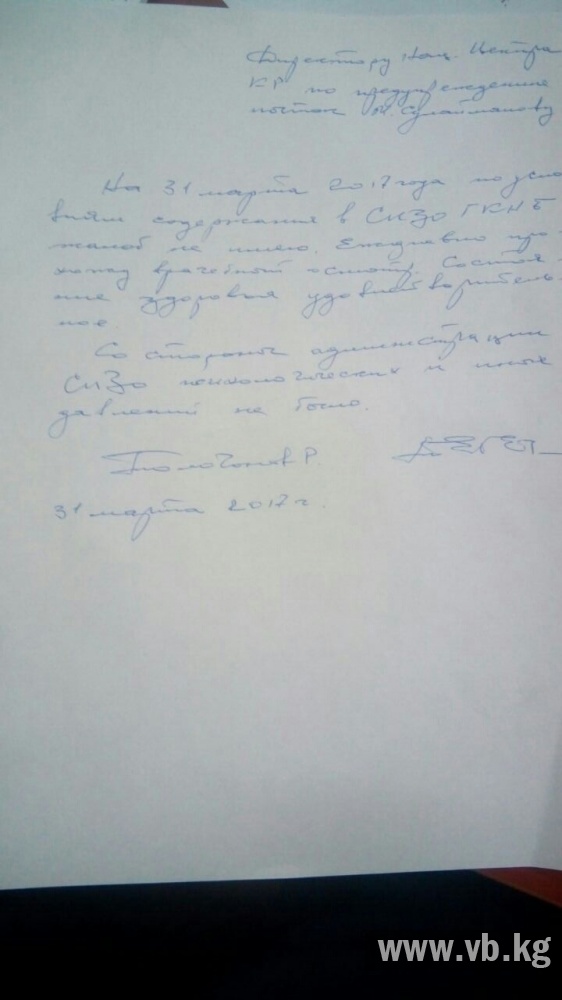 Директору Нац. Центра
КР по предупреждению
пыток М. Сулайманову
На 31 марта 2017 года по усло
виям содержания в СИЗО ГКНБ
жалоб не имею. Ежедневно про-
хожу врачебный осмотр. Состоя-
ние здоровья удовлетворитель-
ное.
Со стороны администрации
СИЗО психологических и иных
давлений не было.
Тюлогонов Р.
31 марта 2017 г.
www.vb.kg